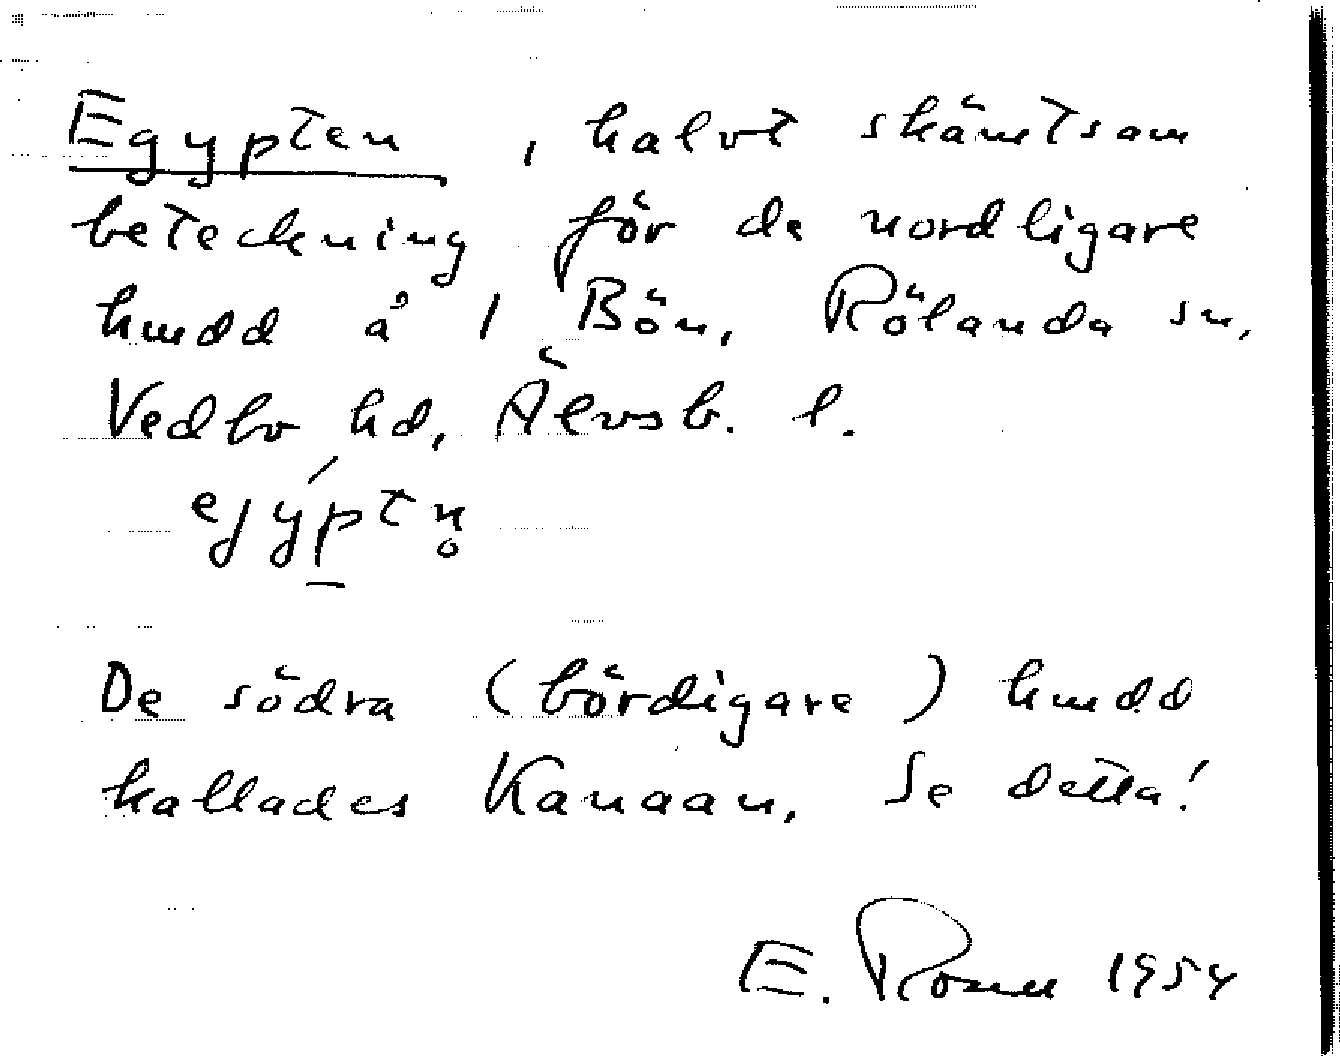 Egypten, halvt skämtsam
beteckning för de nordligare
hmdd å 1 Bön, Rölanda sn,
Vedbo hd, Älvsb. l.
ejýptn̥
De södra (bördigare) hmdd
kallades Kanaan, Se detta!
E. Rosell 1954